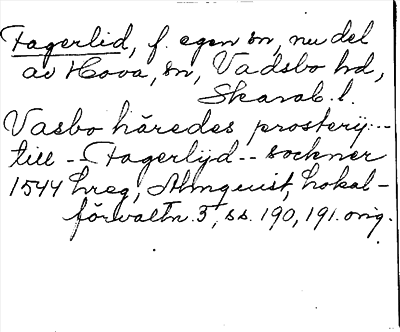 Fagerlid, f. egen sn, nu del
av Hova, sn, Vadsbo hd,
Skarab. l.
Vasbo häredes prosterij ---
till -- Fagerlijd -- sockner
1544 hreg, Almquist, Lokal-
förvaltn. 3, ss. 190, 191. orig.